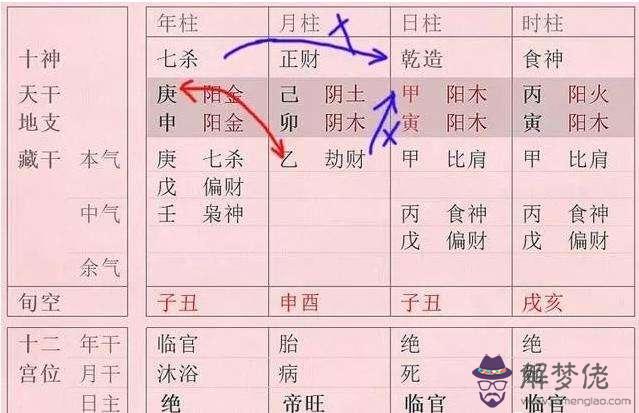 年柱 月柱 日柱 时柱
十神 七杀 正财 乾造 食神
天干 庚 阳金 己 阴土 甲 阳木 丙 阳火
地支 申 阳金 卯 阴木 寅 阳木 寅 阳木
藏干 本气 庚 七杀 乙 劫财 甲 比肩 甲 比肩
戊 偏财
中气 壬 枭神 丙 食神 丙 食神
戊 偏财 戊 偏财
余气
旬空 子丑 申酉 子丑 戌亥
十二 年干 临官 胎 绝 绝
宫位 月干 沐浴 病 死
日主 绝 帝旺 临官 临官
X
X
解梦佬